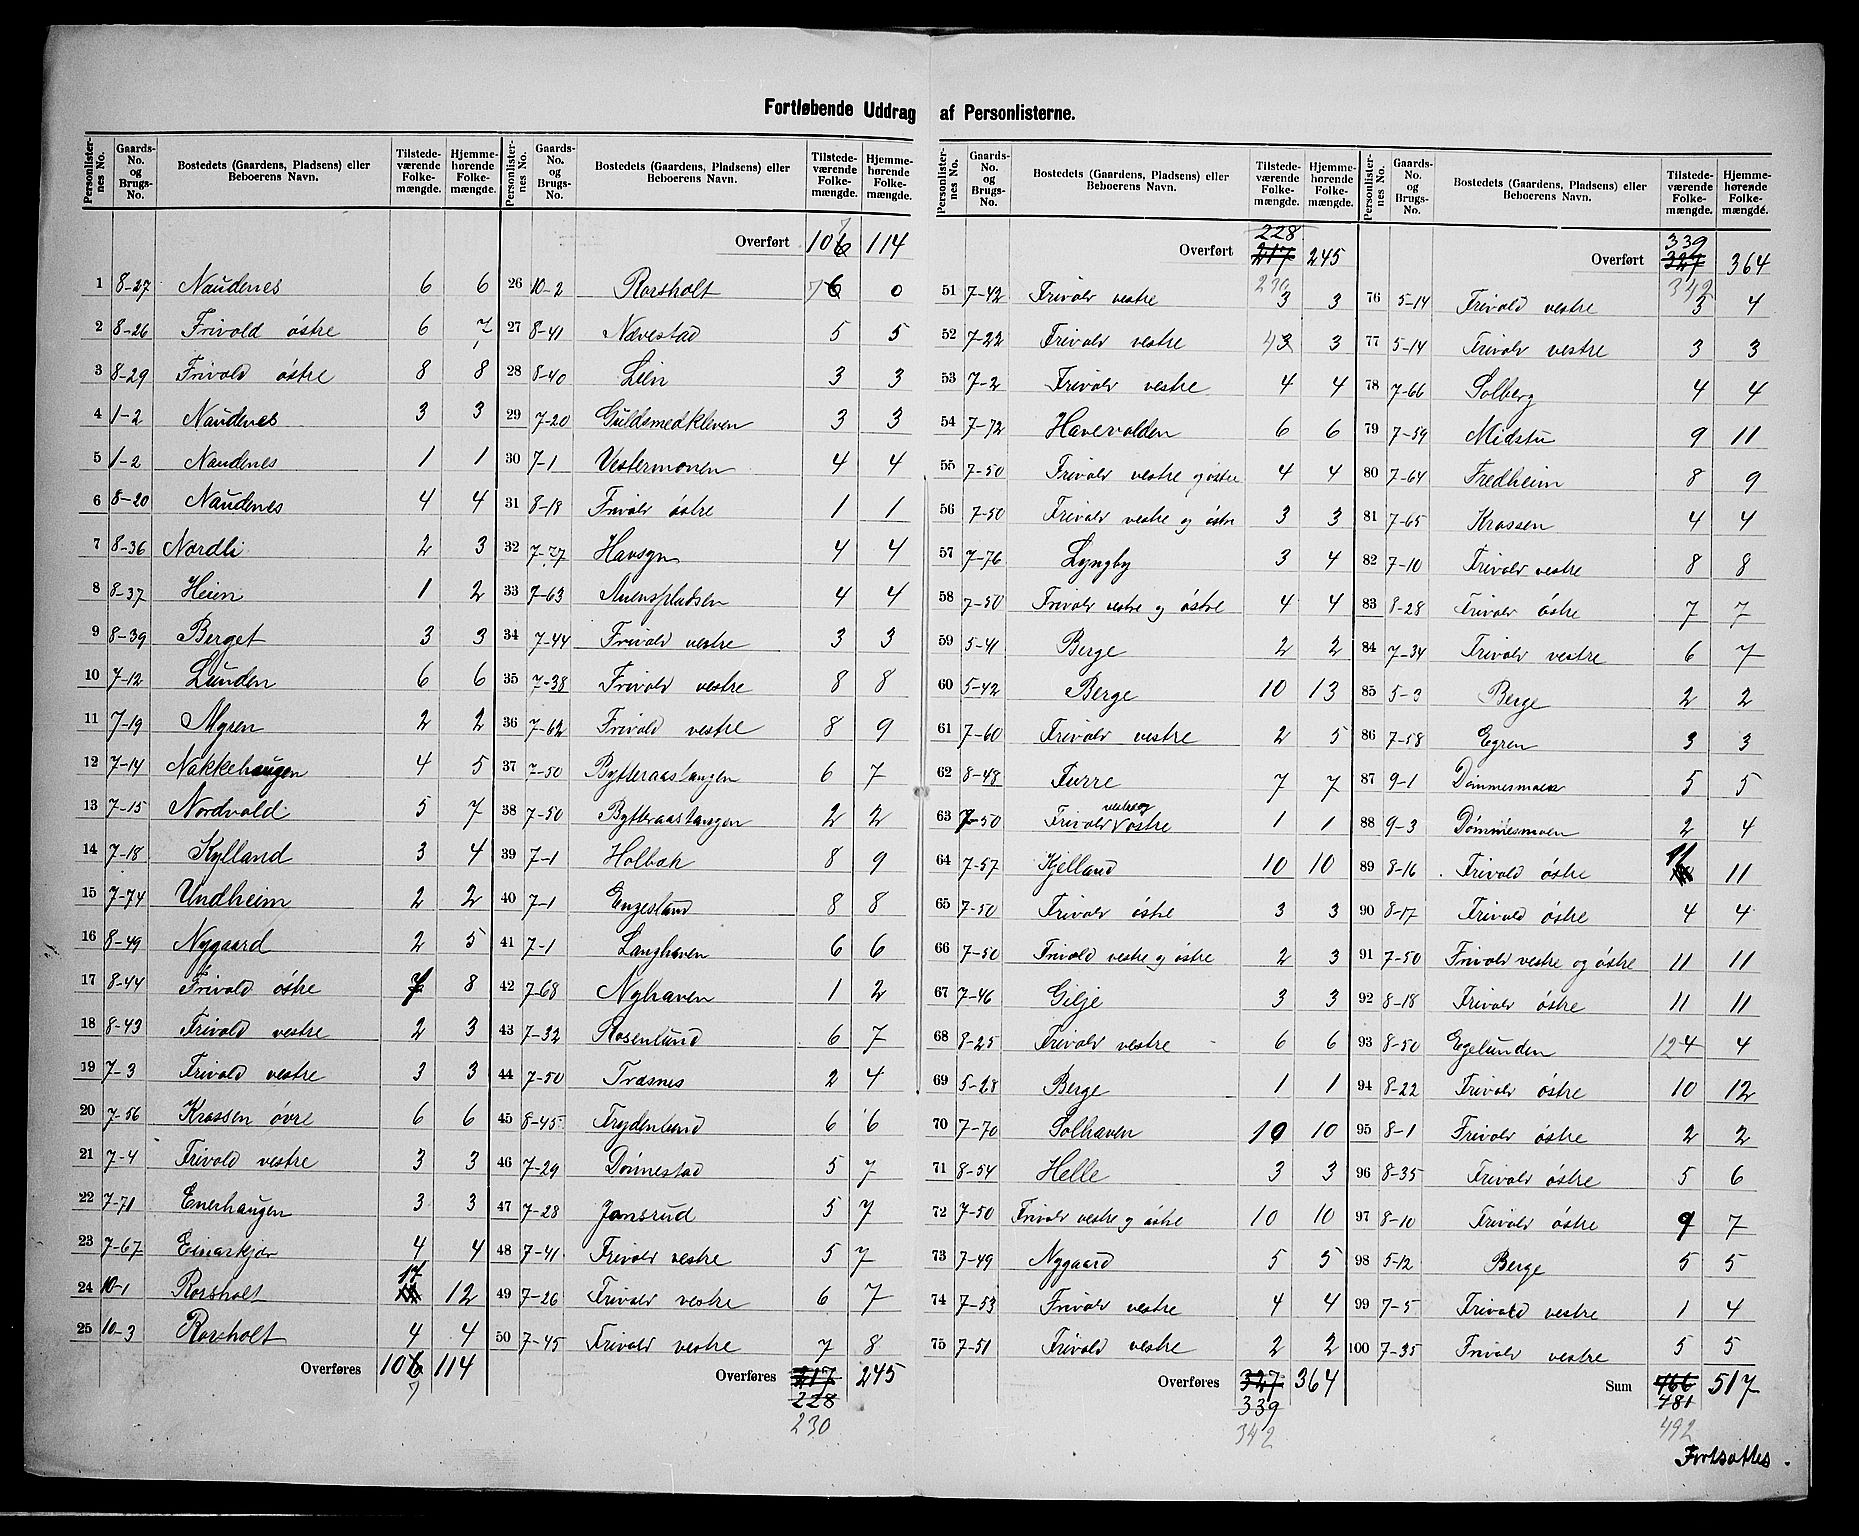 Fortløbende Uddrag af Personlisterne.
Personlister- nes No. Gaards- No. og Brugs- No. Bostedets (Gaardens, Pladsens) eller Beboerens Navn. Tilstede- værende Folke- mængde. Hjemme- hørende Folke- mængde.
1 8-27 Naudenes 6 6
2 8-26 Frivold østre 6 7
3 8-29 Frivold østre 8 8
4 1-2 Naudenes 3 3
5 1-2 Naudenes 1 1
6 8-20 Naudenes 4 4
7 8-36 Nordli 2 3
8 8-37 Heim 1 2
9 8-39 Berget 3 3
10 7-12 Lunden 6 6
11 7-19 Myren 2 2
12 7-14 Nakkehaugen 4 5
13 7-15 Nordvold 5 7
14 7-18 Kylland 3 4
15 7-74 Undheim 2 2
16 8-49 Nygaard 2 5
17 8-44 Frivold østre 7 8
18 8-43 Frivold vestre 2 3
19 7-3 Frivold vestre 3 3
20 7-56 Krossen øvre 6 6
21 7-4 Frivold vestre 3 3
22 7-71 Enerhaugen 3 3
23 7-67 Einaskjær 4 4
24 10-1 Rorsholt 17 12
25 10-3 Rorsholt 4 4
Overføres 106 114
7
Personlister- nes No. Gaards- No. og Brugs- No. Bostedets (Gaardens, Pladsens) eller Beboerens Navn. Tilstede- værende Folke- mængde. Hjemme- hørende Folke- mængde.
7
Overført 106 114
26 10-2 Rorsholt 76 0
27 8-41 Nævestad 5 5
28 8-40 Lien 3 3
29 7-20 Guldsmedkleven 3 3
30 7-1 Vestermonen 4 4
31 8-18 Frivold østre 1 1
32 7-77 Havsyn 4 4
33 7-63 Auenspladsen 4 4
34 7-44 Frivold vestre 3 3
35 7-38 Frivold vestre 8 8
36 7-62 Frivold vestre 8 9
37 7-50 Bytteraastangen 6 7
38 7-50 Bytteraastangen 2 2
39 7-1 Holbæk 8 9
40 7-1 Engesland 8 8
41 7-1 Langhaven 6 6
42 7-68 Nyhaven 1 2
43 7-32 Rosenlund 6 7
44 7-50 Træsnes 2 4
45 8-45 Frydenlund 6 6
46 7-29 Dønnestad 5 7
47 7-28 Jansrud 5 7
48 7-41 Frivold vestre 5 7
49 7-26 Frivold vestre 6 7
50 7-45 Frivold vestre 7 8
Overføres 217 245
228
230
Personlister- nes No. Gaards- No. og Brugs- No. Bostedets (Gaardens, Pladsens) eller Beboerens Navn. Tilstede- værende Folke- mængde. Hjemme- hørende Folke- mængde.
228
Overført 217 245
230
51 7-42 Frivold vestre 3 3
52 7-22 Frivold vestre 43 3
53 7-2 Frivold vestre 4 4
54 7-72 Havevolden 6 6
55 7-50 Frivold vestre og østre 4 4
56 7-50 Frivold vestre og østre 3 3
57 7-76 Lyngby 3 4
58 7-50 Frivold vestre og østre 4 4
59 5-41 Berge 2 2
60 5-42 Berge 10 13
61 7-60 Frivold vestre 2 5
62 8-48 Furre 7 7
63 7-50 Frivold vestre og østre 1 1
64 7-57 Kjelland 10 10
65 7-50 Frivold østre 3 3
66 7-50 Frivold vestre og østre 2 3
67 7-46 Gilje 3 3
68 8-25 Frivold vestre 6 6
69 5-28 Berge 1 1
70 7-70 Solhaven 10 10
71 8-54 Helle 3 3
72 7-50 Frivold vestre og østre 10 10
73 7-49 Nygaard 5 5
74 7-53 Frivold vestre 4 4
75 7-51 Frivold vestre 2 2
Overføres 327 364
339
342
Personlister- nes No. Gaards- No. og Brugs- No. Bostedets (Gaardens, Pladsens) eller Beboerens Navn. Tilstede- værende Folke- mængde. Hjemme- hørende Folke- mængde.
339
Overført 327 364
342
76 5-14 Frivold vestre 3 4
77 5-14 Frivold vestre 3 3
78 7-66 Solberg 4 4
79 7-59 Midstu 9 11
80 7-64 Fredheim 8 9
81 7-65 Krossen 4 4
82 7-10 Frivold vestre 8 8
83 8-28 Frivold østre 7 7
84 7-34 Frivold vestre 6 7
85 5-3 Berge 2 2
86 7-58 Egren 3 3
87 9-1 Dømmesmoen 5 5
88 9-3 Dømmesmoen 2 4
89 8-16 Frivold østre 11 11
90 8-17 Frivold østre 4 4
91 7-50 Frivold vestre og østre 11 11
92 8-18 Frivold østre 11 11
93 8-50 Egelunden 124 4
94 8-22 Frivold østre 10 12
95 8-1 Frivold østre 2 2
96 8-35 Frivold østre 5 6
97 8-10 Frivold østre 9 7
98 5-12 Berge 5 5
99 7-5 Frivold vestre 1 4
100 7-35 Frivold vestre 5 5
Sum 466 517
481
492
Fortsættes.